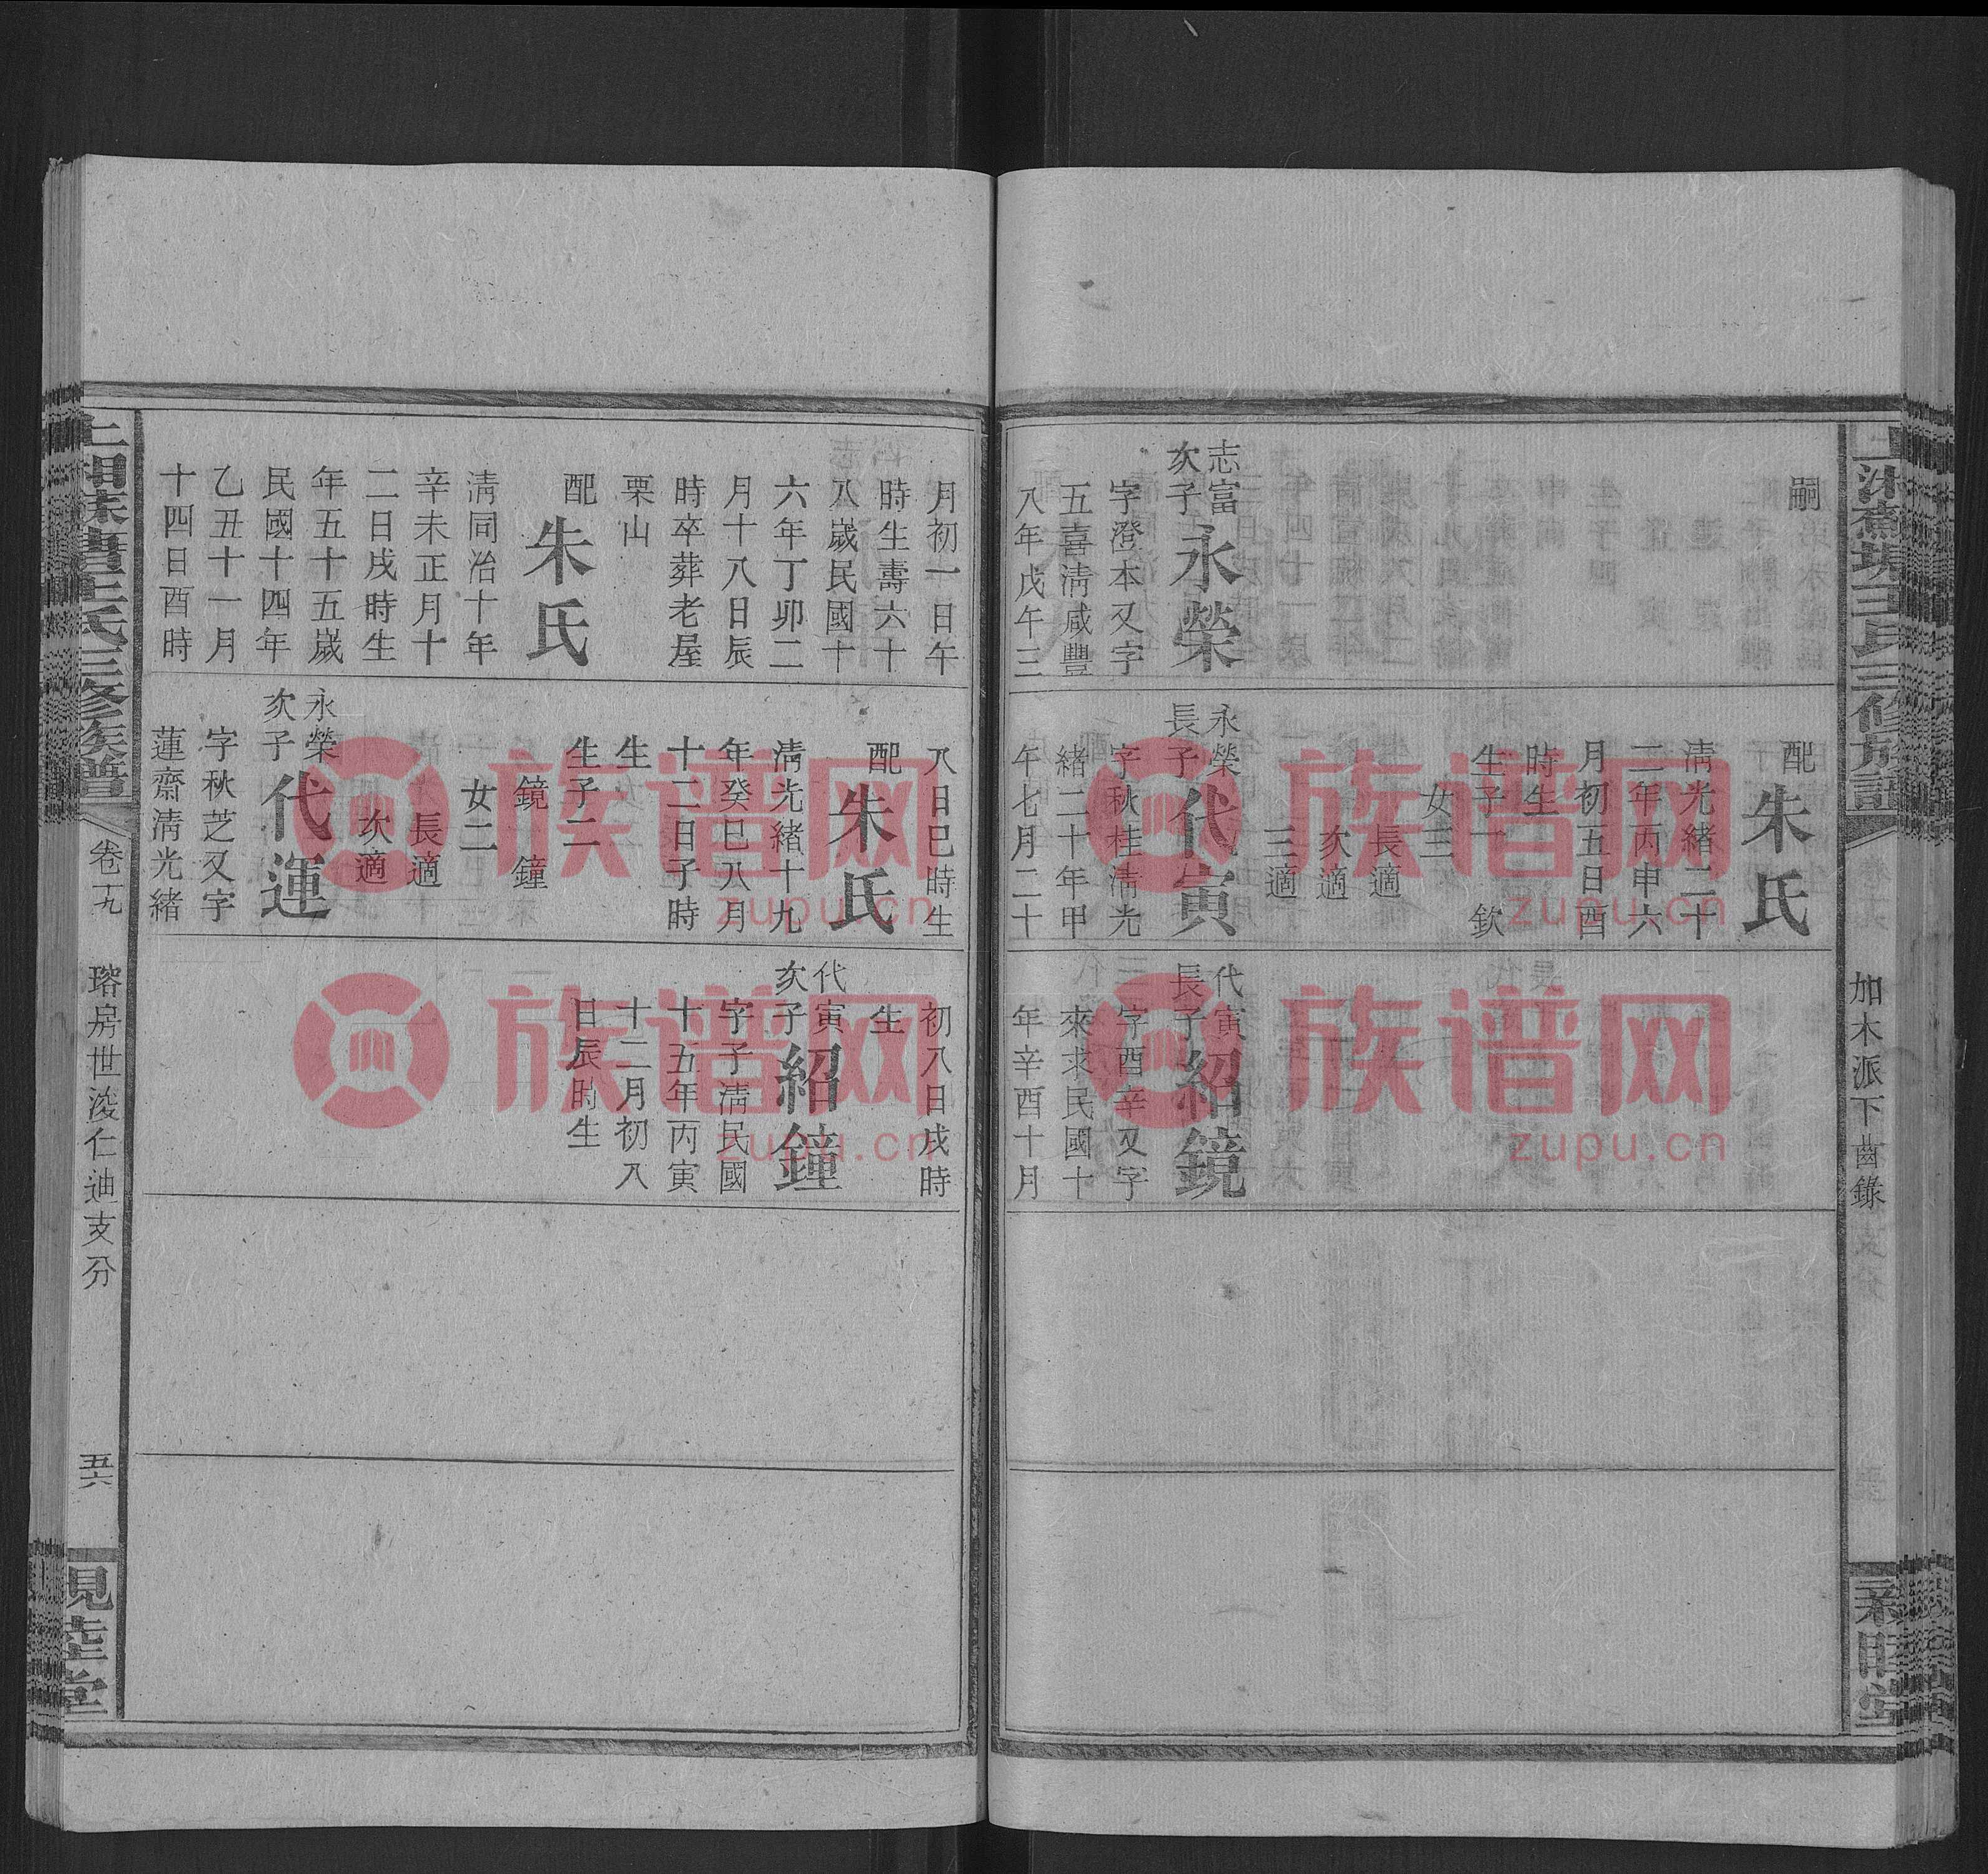 加木派下齒錄
嗣
志富
次子
永榮
字澄本又字
五喜淸咸豐
八年戊午三
配
朱氏
淸光緒二十
二年丙申六
月初五日酉
時生
生子一　欽
女三
長適
次適
三適
永榮
長子
代寅
字秋桂淸光
緒二十年甲
午七月二十
代寅
長子
紹鏡
字酉辛又字
來求民國十
年辛酉十月
月初一日午
時生壽六十
八歲民國十
六年丁卯二
月十八日辰
時卒葬老屋
栗山
配
朱氏
淸同治十年
辛未正月十
二日戌時生
年五十五歲
民國十四年
乙丑十一月
十四日酉時
八日巳時生
配
朱氏
淸光緒十九
年癸巳八月
十二日子時
生
生子二
鏡　鐘
女二
長適
次適
永榮
次子
代運
字秋芝又字
蓮齋淸光緒
初八日戌時
生
代寅
次子
紹鐘
字子淸民國
十五年丙寅
十二月初八
日辰時生
王氏三修族譜
卷十九
瑢房世浚仁迪支分
五六
堂
族谱网
zupu.cn
族谱网
zupu.cn
族谱网
zupu.cn
族谱网
zupu.cn